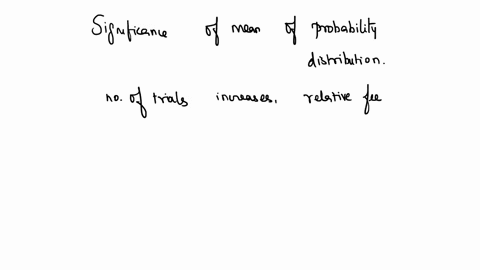 Significance of mean of probability
distribution.
no. of trials increases, relative fre